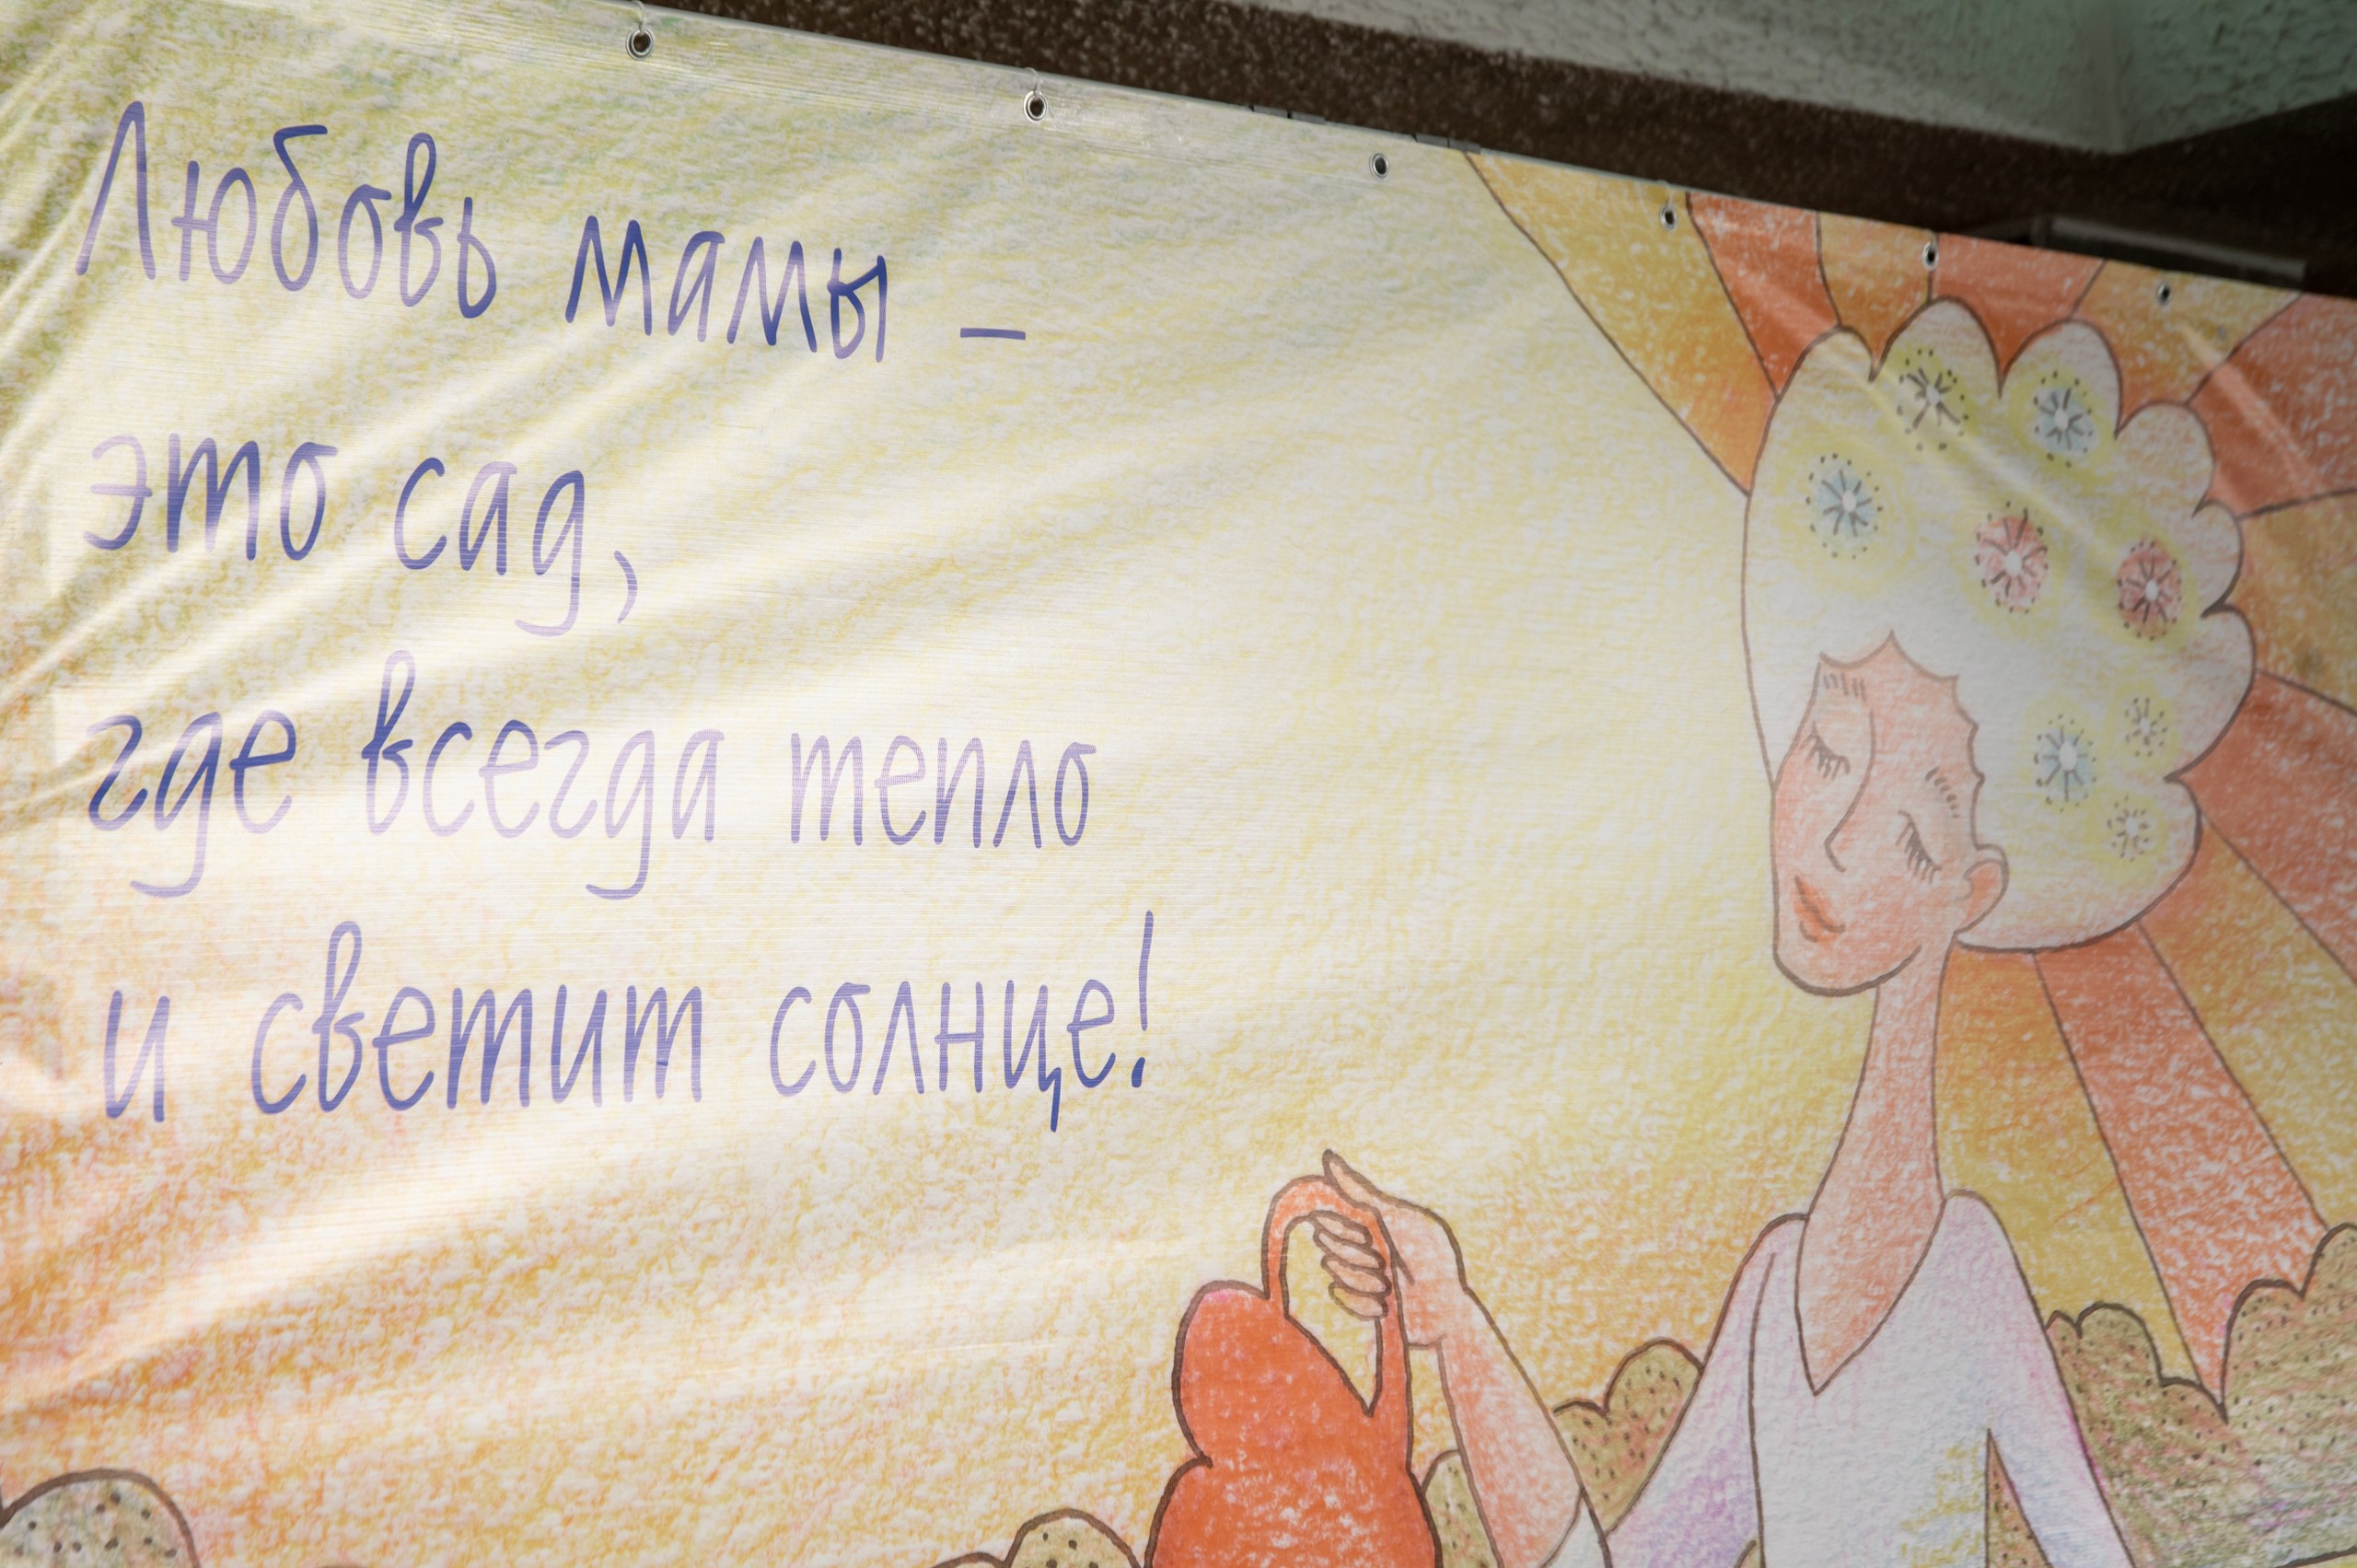 Любовь мамы –
это сад,
где всегда тепло
и светит солнце!